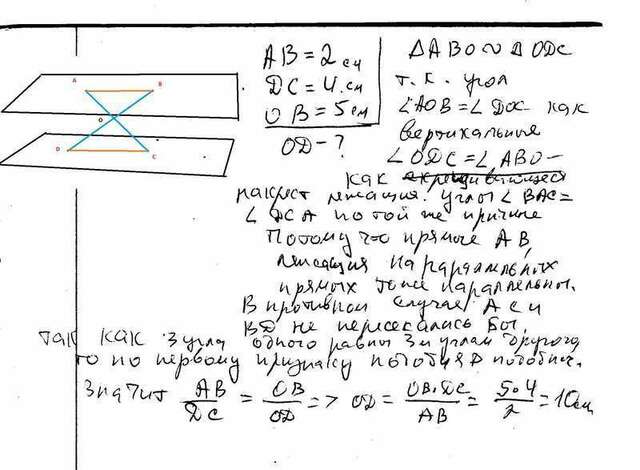 A B
O
D C
AB = 2 см
DC = 4 см
OB = 5 см
OD - ?
△ABO ∾ △ODC
т.к. угол
∠AOB = ∠DOC как
вертикальные
∠ODC = ∠ABO -
как
накрест лежащие. углы ∠BAC =
∠DCA по той же причине
Потому что прямые AB,
лежащия на параллельных
прямых тоже параллельны.
В противном случае AC и
BD не пересекались бы.
так как 3 угла одного равны 3м углам другого
то по первому признаку подобия △ подобны.
Значит AB/DC = OB/OD => OD = OB·DC/AB = 5·4/2 = 10см